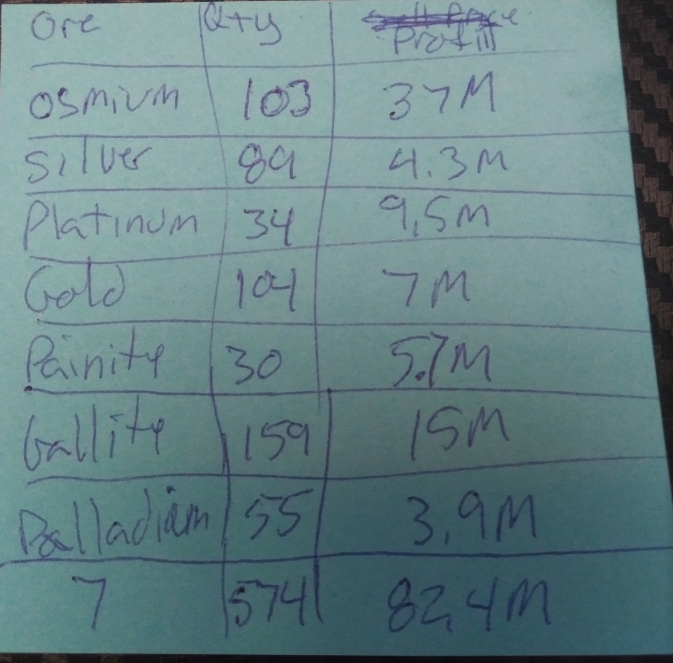 Ore Qty Profit
Osmium 103 37M
Silver 89 4.3M
Platinum 34 9.5M
Gold 104 7M
Painite 30 5.7M
Gallite 159 15M
Palladium 55 3.9M
7 574 82.4M